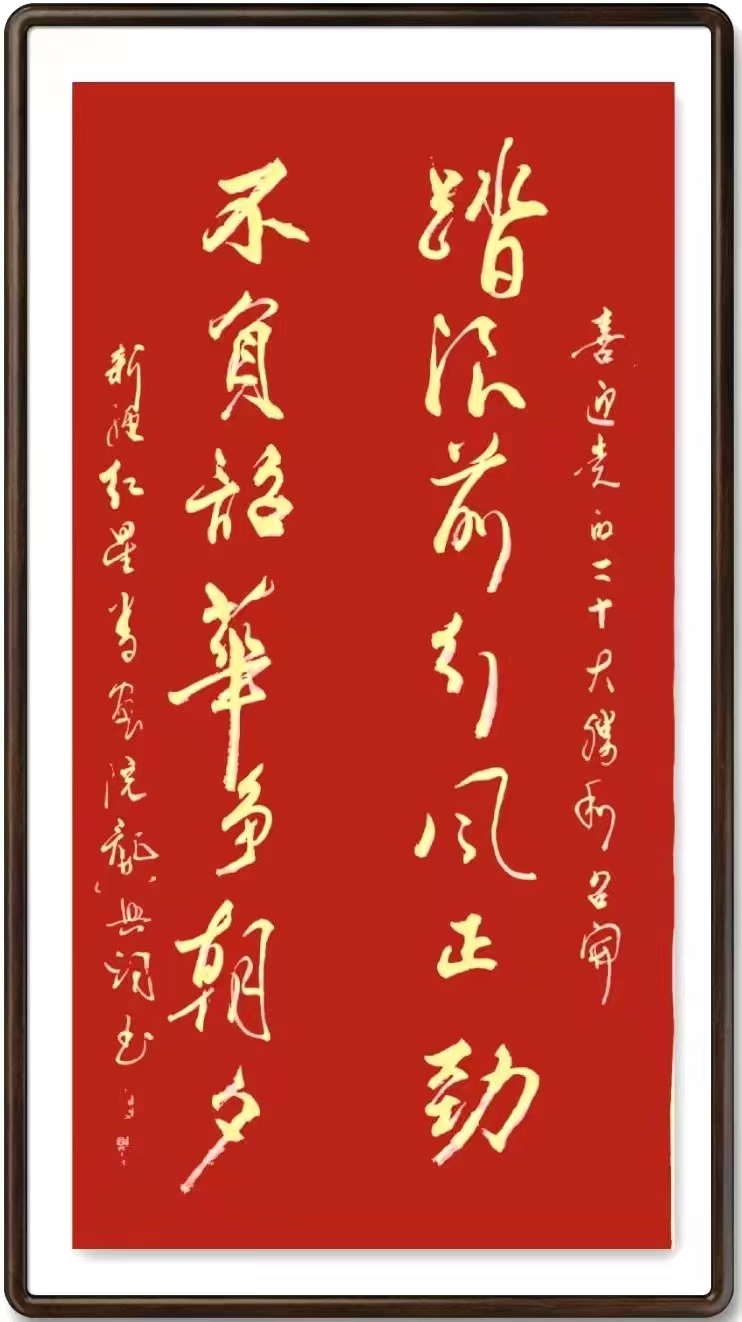 喜迎党的二十大勝利召開
踏浪前行风正劲
不負韶華争朝夕
新疆红星书画院龍興潤书